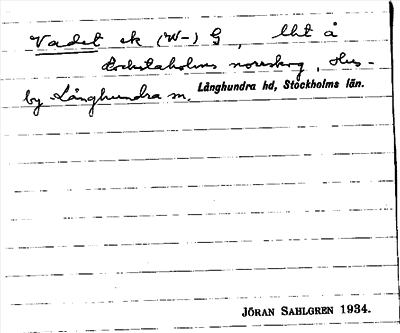 Vadet ek (W-) G, lht å
Lockstaholms norrskog, Hus-
by Långhundra sn.
Långhundra hd, Stockholms län.
JÖRAN SAHLGREN 1934.